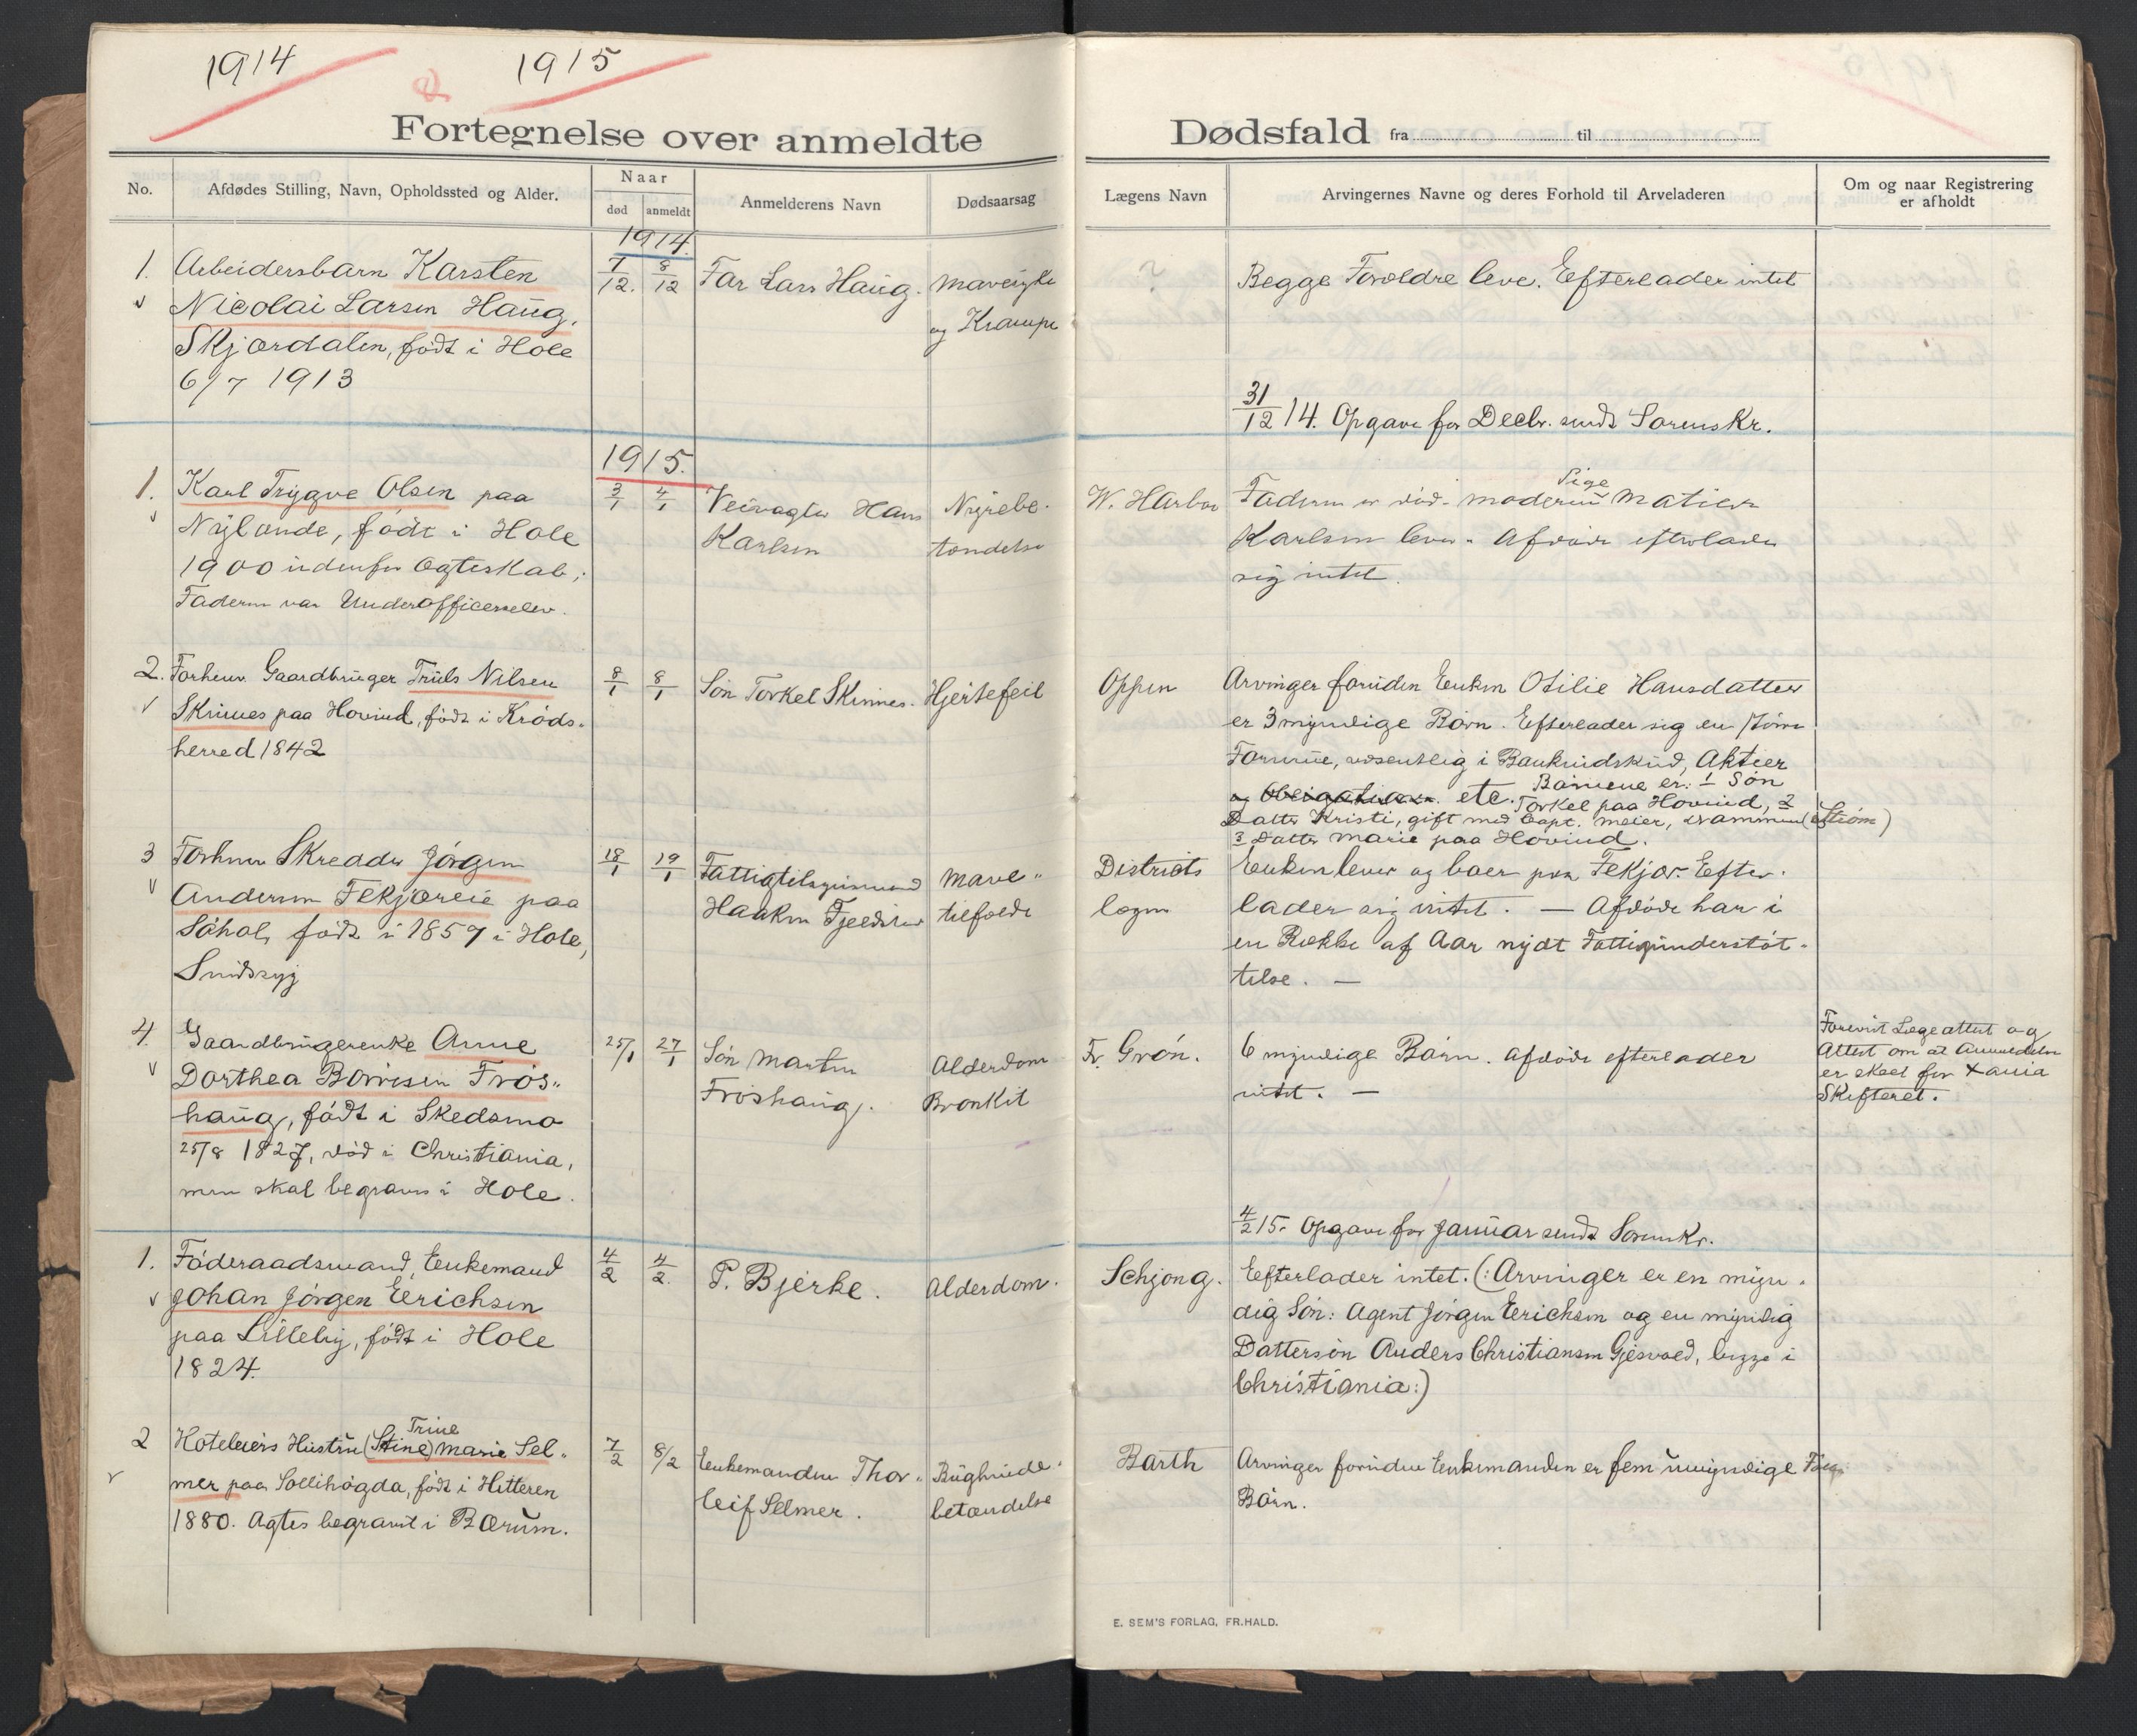 1914
1915
Fortegnelse over anmeldte
Dødsfald fra til
No.
Afdødes Stilling, Navn, Opholdssted og Alder.
Naar
død
anmeldt
Anmelderens Navn
Dødsaarsag
Lægens Navn
Arvingernes Navne og deres Forhold til Arveladeren
Om og naar Registrering
er afholdt
1914.
1. Arbeidersbarn Karsten
Nicolai Larsen Haug,
Skjærdalen, født i Hole
6/7 1913
7/12. 8/12
Far Lars Haug.
Mavesyke
og Krampe
?
Begge Forældre leve. Efterlader intet
31/12 14. Opgave for Decbr. sendt Sorenskr.
1915.
1. Karl Trygve Olsen paa
Nylænde, født i Hole
1900 udenfor Ægteskab;
Faderen var Underofficerselev.
3/1 4/1
Veivagter Hans
Karlsen
Nyrebe-
tændelse
W. Harboe
Faderen er død - moderen Pige
Karlsen lever. Afdøde efterlader
sig intet.
2. Forhenv. Gaardbruger Truls Nilsen
Skinnes paa Hovind, født i Kröds-
herred 1842
8/1 8/1
Søn Torkel Skinnes.
Hjertefeil
Oppen
Arvinger foruden Enken Otilie Hansdatter
er 3 myndige Børn. Efterlader sig en større
Formue, væsentlig i Bankindskud, Aktier
og Obligationer. etc. Børnene er: 1 Søn
Torkel paa Hovind, 2
Datter Kristi, gift med Capt. Meier, Drammen (Strøm)
3 Datter Marie paa Hovind.
3 Forhenv Skredder Jørgen
Andersen Fekjæreie paa
Søhol, født i 1857 i Hole,
Sindssyg
18/1 19/1
Fattigtilsynsmand
Haakon Fjeldstad
Mave-
tilfælde
Districts
lægen
Enken lever og boer paa Fekjær. Efter-
lader sig intet. — Afdøde har i
en Række af Aar nydt Fattigunderstøt-
telse. —
4. Gaardbrugerenke Anne
Dorthea Borrisen Frøs-
haug, født i Skedsmo
25/8 1827, død i Christiania,
men skal begraves i Hole.
25/1 27/1
Søn Martin
Frøshaug.
Alderdom
Bronkit
Fr. Grøn.
6 myndige Børn. Afdøde efterlader
intet. —
Forevist Lægeattest og
Attest om at Anmeldelse
er skeet for Xania
Skifteret.
4/2 15. Opgave for Januar sendt Sorenskr.
1. Føderaadsmand, Enkemand
Johan Jørgen Erichsen
paa Lilleby, født i Hole
1824.
4/2 4/2.
P. Bjerke.
Alderdom.
Schjong.
Efterlader intet. (: Arvinger er en myn-
dig Søn: Agent Jørgen Erichsen og en myndig
Dattersøn Anders Christiansen Gjesvold, begge i
Christiania:)
2 Hoteleiers Hustru (Stine) Trine Marie Sel-
mer paa Sollihøgda, født i Hitteren
1880. Agtes begravet i Bærum.
7/2 8/2
Enkemanden Thor-
leif Selmer.
Bughinde-
betændelse
Barth
Arvinger foruden Enkemanden er fem umyndige
Børn.
E. SEM'S FORLAG, FR.HALD.